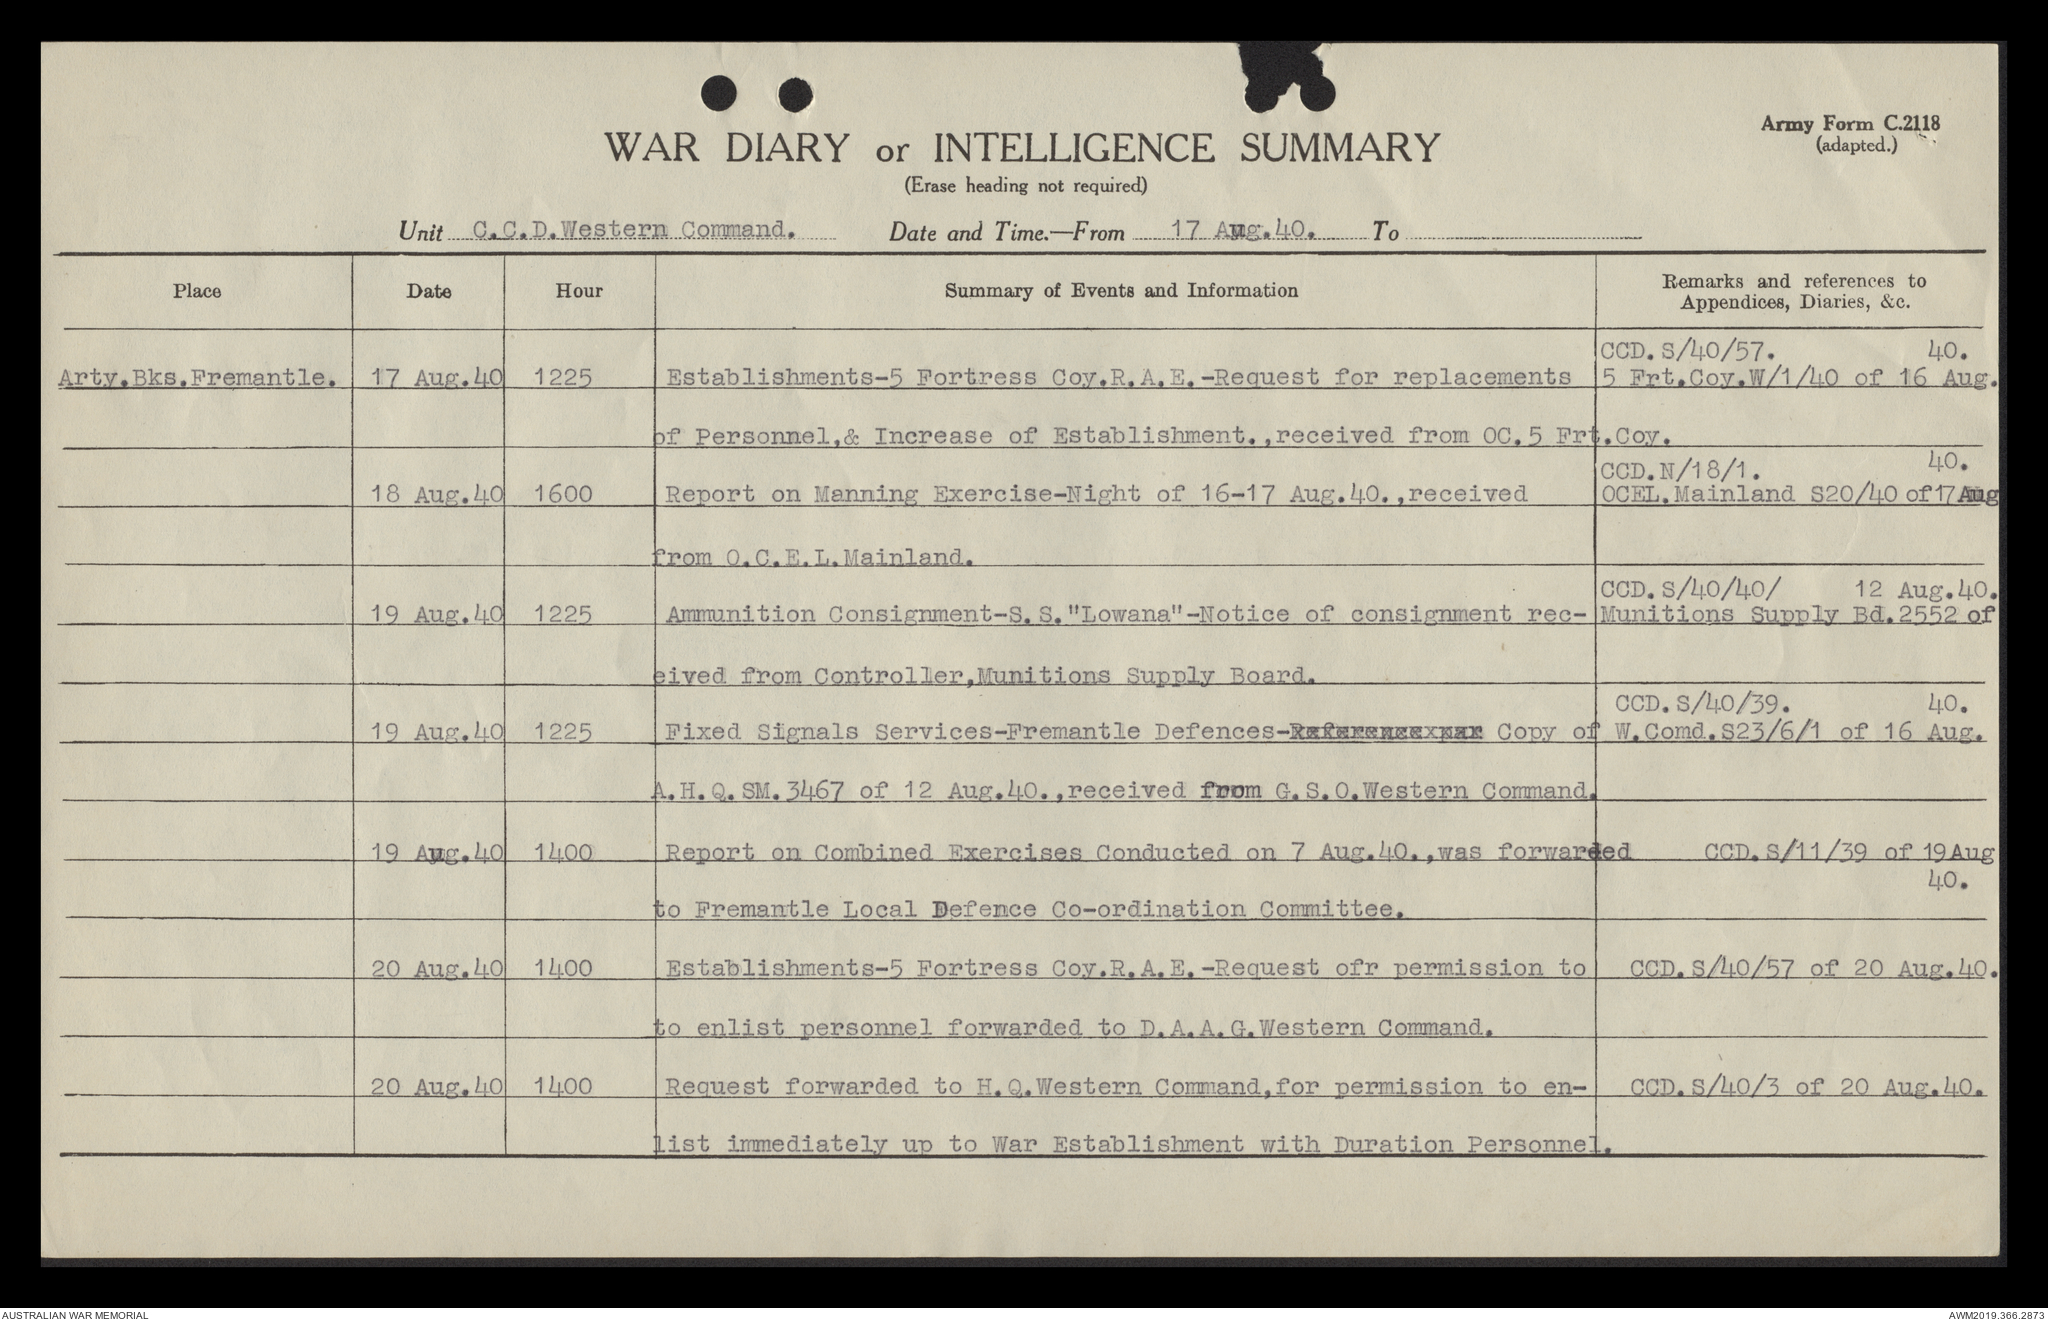 Army Form C.2118
(adapted.)
WAR DIARY or INTELLIGENCE SUMMARY
(Erase heading not required)
Unit C.C.D.Western Command. Date and Time.—From 17 Aug.40. To
Place Date Hour Summary of Events and Information Remarks and references to
Appendices, Diaries, &c.
CCD.S/40/57. 40.
Arty.Bks.Fremantle. 17 Aug.40 1225 Establishments-5 Fortress Coy.R.A.E.-Request for replacements 5 Frt.Coy.W/1/40 of 16 Aug.
of Personnel,& Increase of Establishment.,received from OC.5 Frt.Coy.
CCD.N/18/1. 40.
18 Aug.40 1600 Report on Manning Exercise-Night of 16-17 Aug.40.,received OCEL.Mainland S20/40 of 17 Aug
from O.C.E.L.Mainland.
CCD.S/40/40/ 12 Aug.40.
19 Aug.40 1225 Ammunition Consignment-S.S."Lowana"-Notice of consignment rec- Munitions Supply Bd.2552 of
eived from Controller,Munitions Supply Board.
CCD.S/40/39. 40.
19 Aug.40 1225 Fixed Signals Services-Fremantle Defences- Copy of W.Comd.S23/6/1 of 16 Aug.
A.H.Q.SM.3467 of 12 Aug.40.,received from G.S.O.Western Command.
19 Aug.40 1400 Report on Combined Exercises Conducted on 7 Aug.40.,was forwarded CCD.S/11/39 of 19Aug
40.
to Fremantle Local Defence Co-ordination Committee.
20 Aug.40 1400 Establishments-5 Fortress Coy.R.A.E.-Request ofr permission to CCD.S/40/57 of 20 Aug.40.
to enlist personnel forwarded to D.A.A.G.Western Command.
20 Aug.40 1400 Request forwarded to H.Q.Western Command,for permission to en- CCD.S/40/3 of 20 Aug.40.
list immediately up to War Establishment with Duration Personnel.
AUSTRALIAN WAR MEMORIAL AWM2019.366.2873